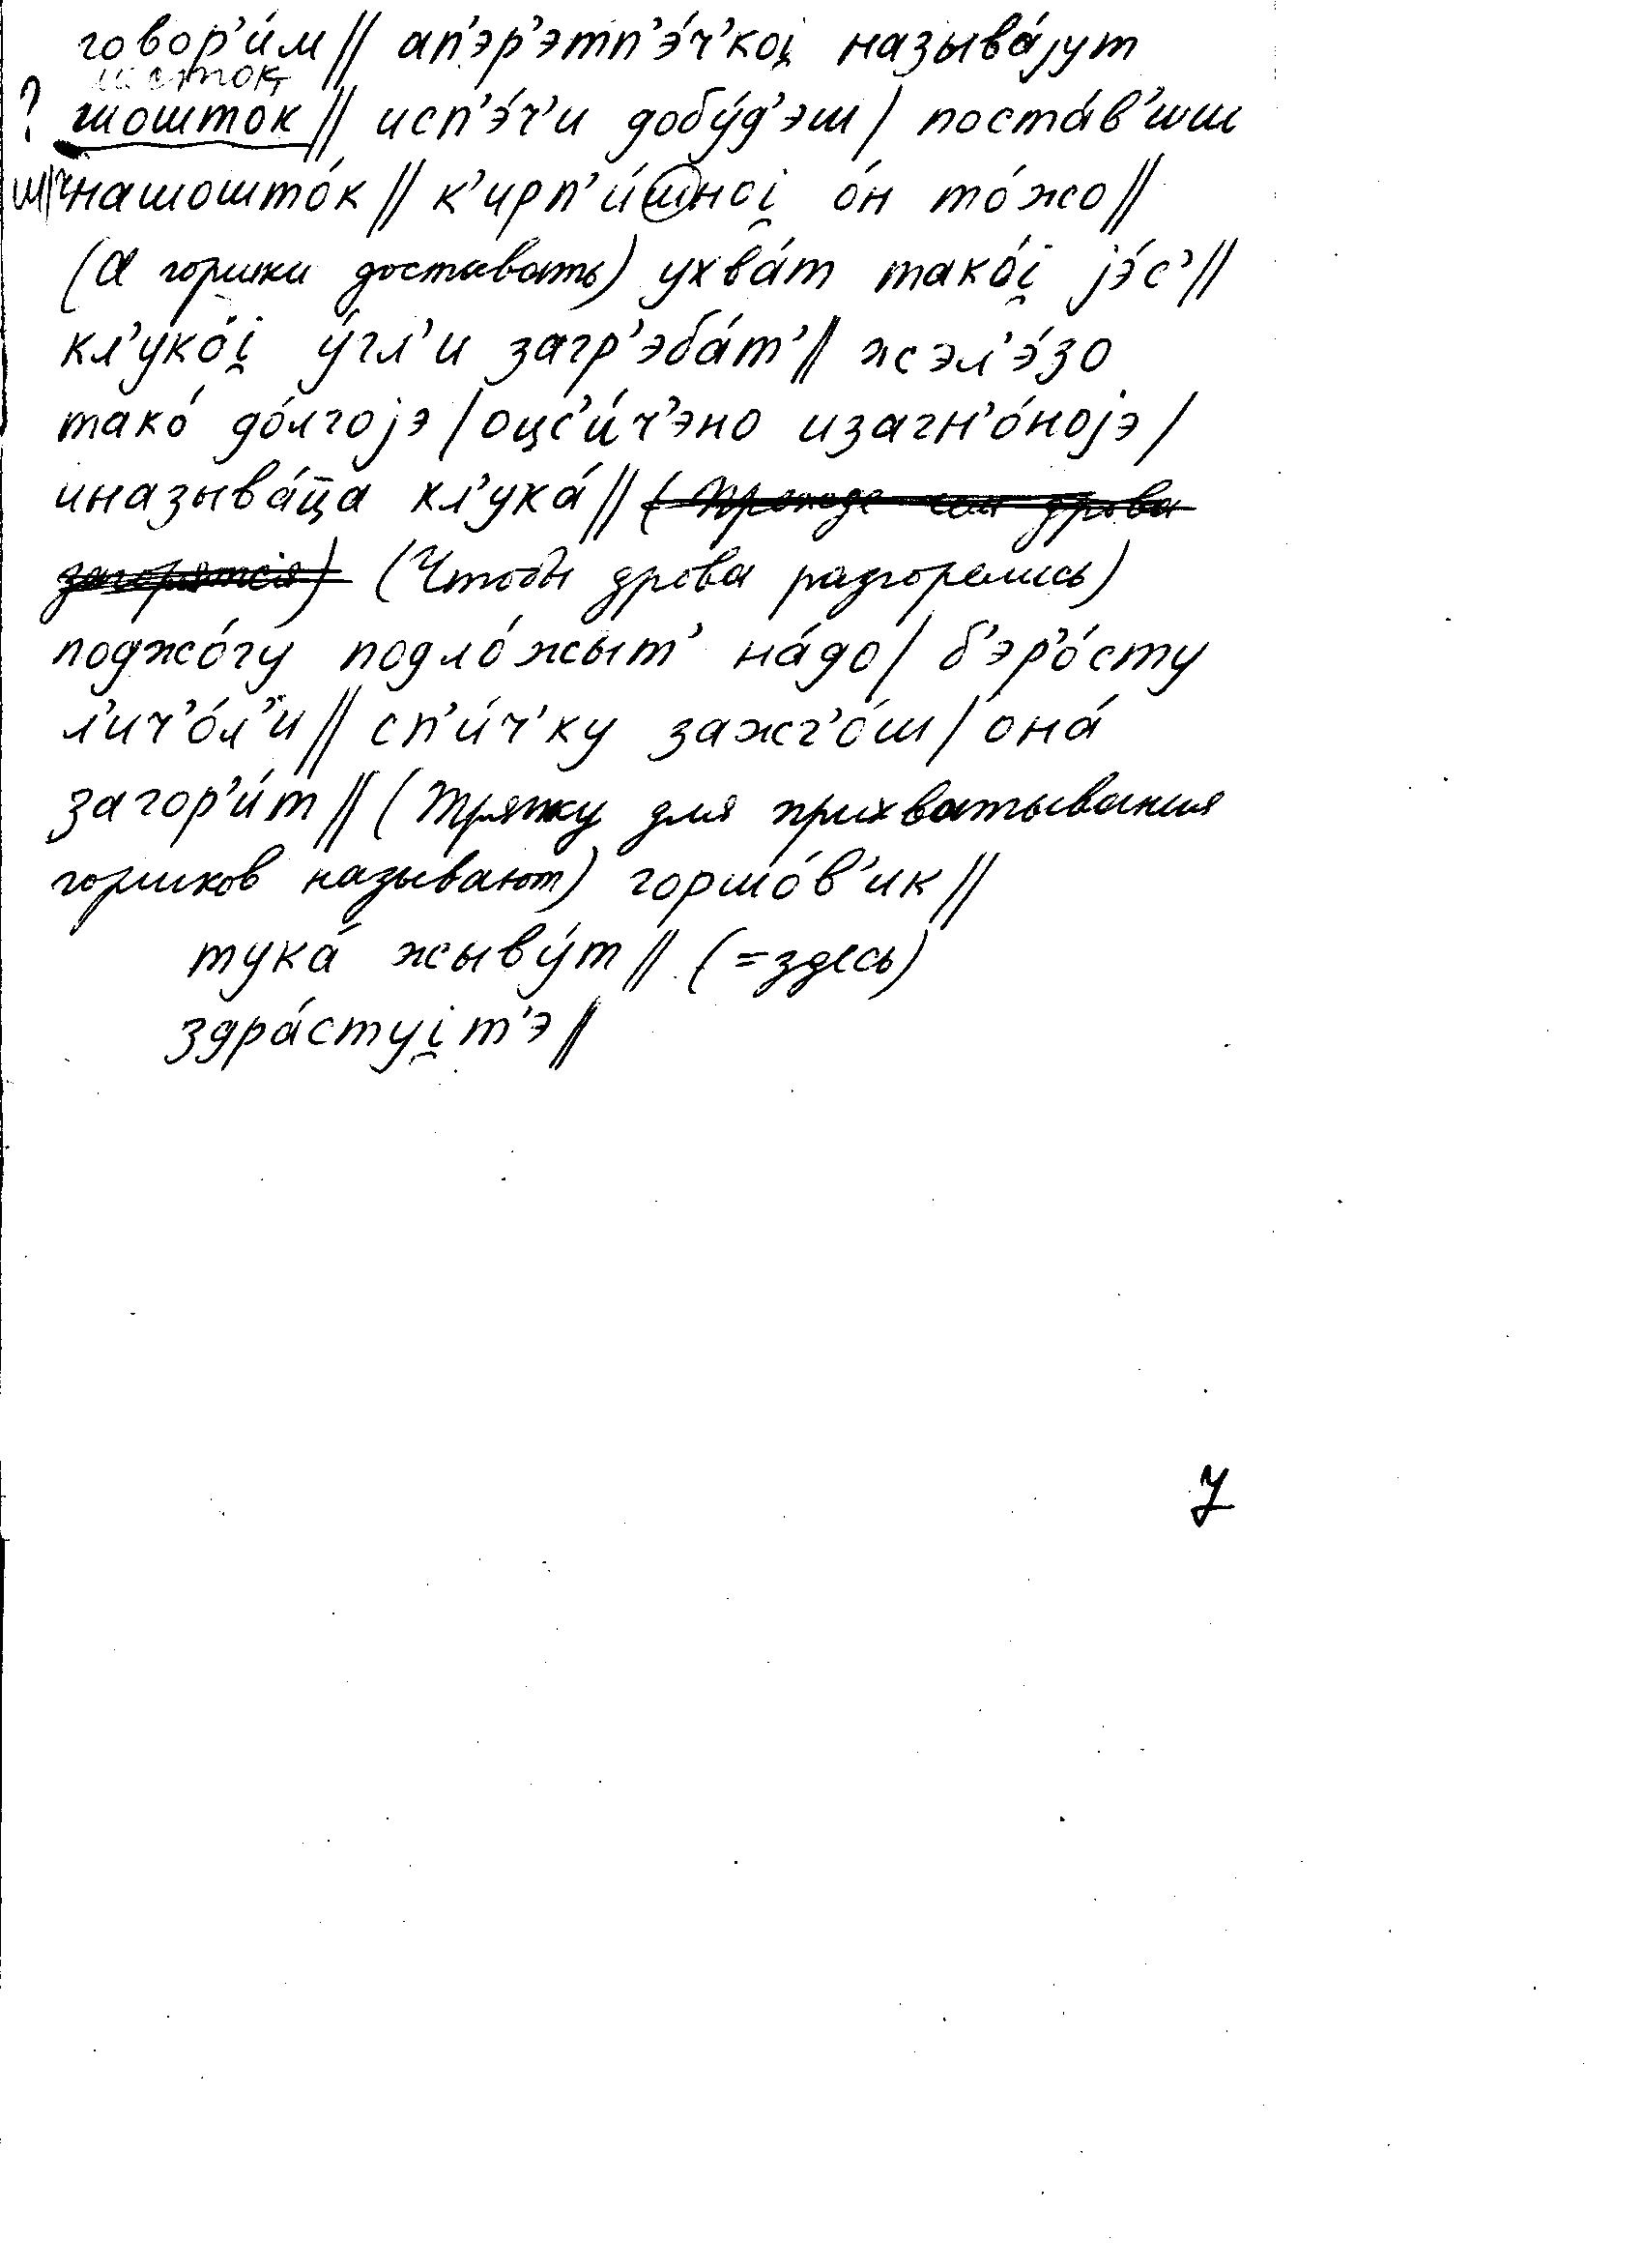 говор'и́м // ап'эр'этп'э́ч'коi̯ называ́jут
шосток
? шошток // исп'э́ч'и добу́д'эш / поста́в'иш
ш/ч нашошто́к // к'ирп'и́шноi̯ о́н то́жо //
(А горшки доставать) ухва́т тако́i̯ jэ́с' //
кл'уко́i̯ у́гл'и загр'эба́т' // жэл'э́зо
тако́ до́лгоjэ / оцс'и́ч'эно изагн'о́ноjэ /
иназыва́ц̄а кл'ука́ // (Прежде чем дрова
загорятся) (Чтобы дрова разгорелись)
поджо́гу подло́жыт' на́до / б'эр'о́сту
л'ич'о́л'и // сп'и́ч'ку зажг'о́ш / она́
загор'и́т // (Тряпку для прихватывания
горшков называют) горшо́в'ик //
тука́ жыву́т // (=здесь)
здра́стуi̯т'э //
7